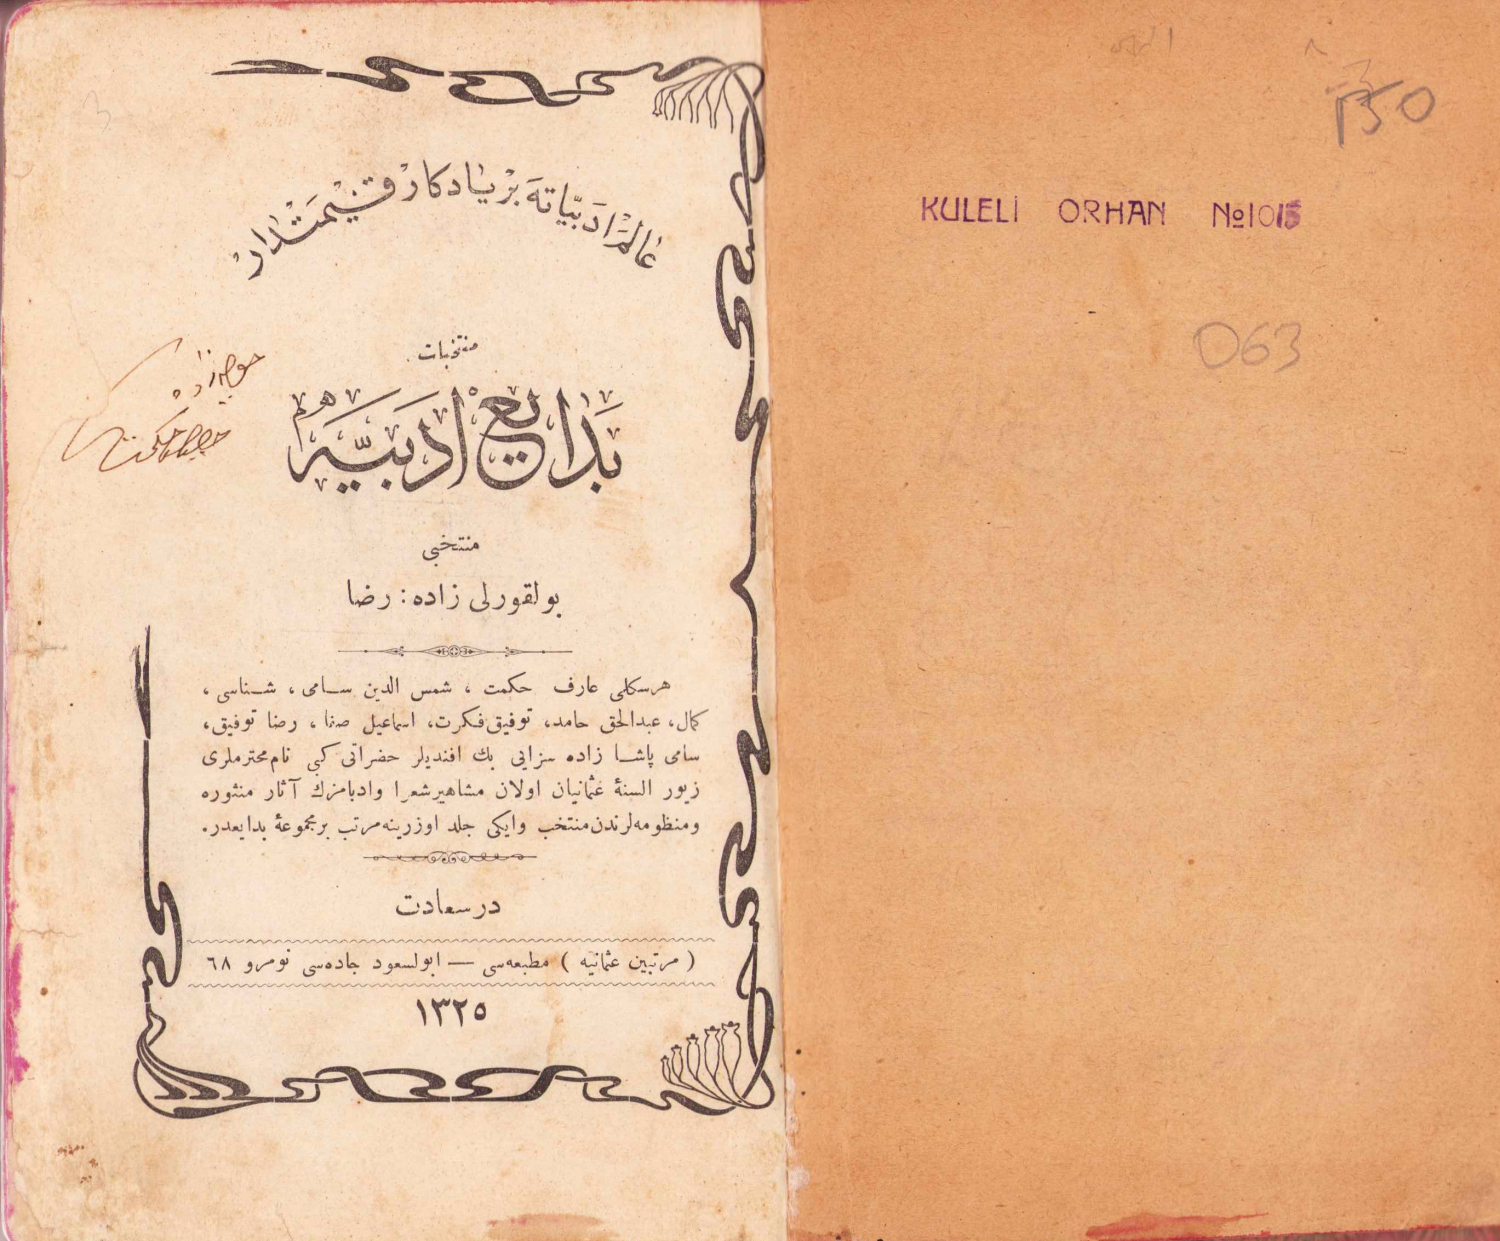 عالم ادبیاته بر یادکار قیمتدار
منتخبات
بدایع ادبیه
منتخبی
بولقورلی زاده : رضا
هرسكلی عارف حكمت ، شمس الدین سامی ، شناسی ،
كمال، عبدالحق حامد، توفیق فكرت، اسماعیل صفا ، رضا توفیق،
سامی پاشا زاده سزایی بك افندیلر حضراتی كبی نام محترملری
زیور السنهٔ عثمانیان اولان مشاهیر شعرا وادبامزك آثار منثوره
ومنظومه لرندن منتخب وایكی جلد اوزرینه مرتب بر مجموعهٔ بدایعدر.
درسعادت
( مرتبین عثمانیه ) مطبعه سی — ابوالسعود جاده سی نومرو ٦٨
١٣٢٥
KULELİ ORHAN №1015
063